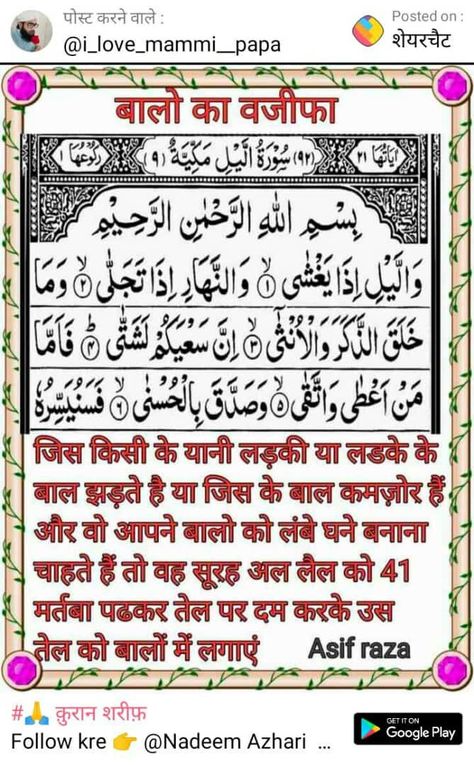 पोस्ट करने वाले :
@i_love_mammi__papa
Posted on :
शेयरचैट
बालो का वजीफा
اٰیَاتُهَا ٢١ (٩٢) سُوْرَةُ الَّیْلِ مَکِّیَّةٌ (٩) رُکُوْعُهَا ١
بِسْمِ اللهِ الرَّحْمٰنِ الرَّحِیْمِ
وَالَّیْلِ اِذَا یَغْشٰی ۙ١ وَالنَّهَارِ اِذَا تَجَلّٰی ۙ٢ وَمَا
خَلَقَ الذَّکَرَ وَالْاُنْثٰۤی ۙ٣ اِنَّ سَعْیَکُمْ لَشَتّٰی ؕ٤ فَاَمَّا
مَنْ اَعْطٰی وَاتَّقٰی ۙ٥ وَصَدَّقَ بِالْحُسْنٰی ۙ٦ فَسَنُیَسِّرُهٗ
जिस किसी के यानी लड़की या लडके के
बाल झड़ते है या जिस के बाल कमज़ोर हैं
और वो आपने बालो को लंबे घने बनाना
चाहते हैं तो वह सूरह अल लैल को 41
मर्तबा पढकर तेल पर दम करके उस
तेल को बालों में लगाएं Asif raza
#🙏 क़ुरान शरीफ़
Follow kre 👉 @Nadeem Azhari ...
GET IT ON
Google Play